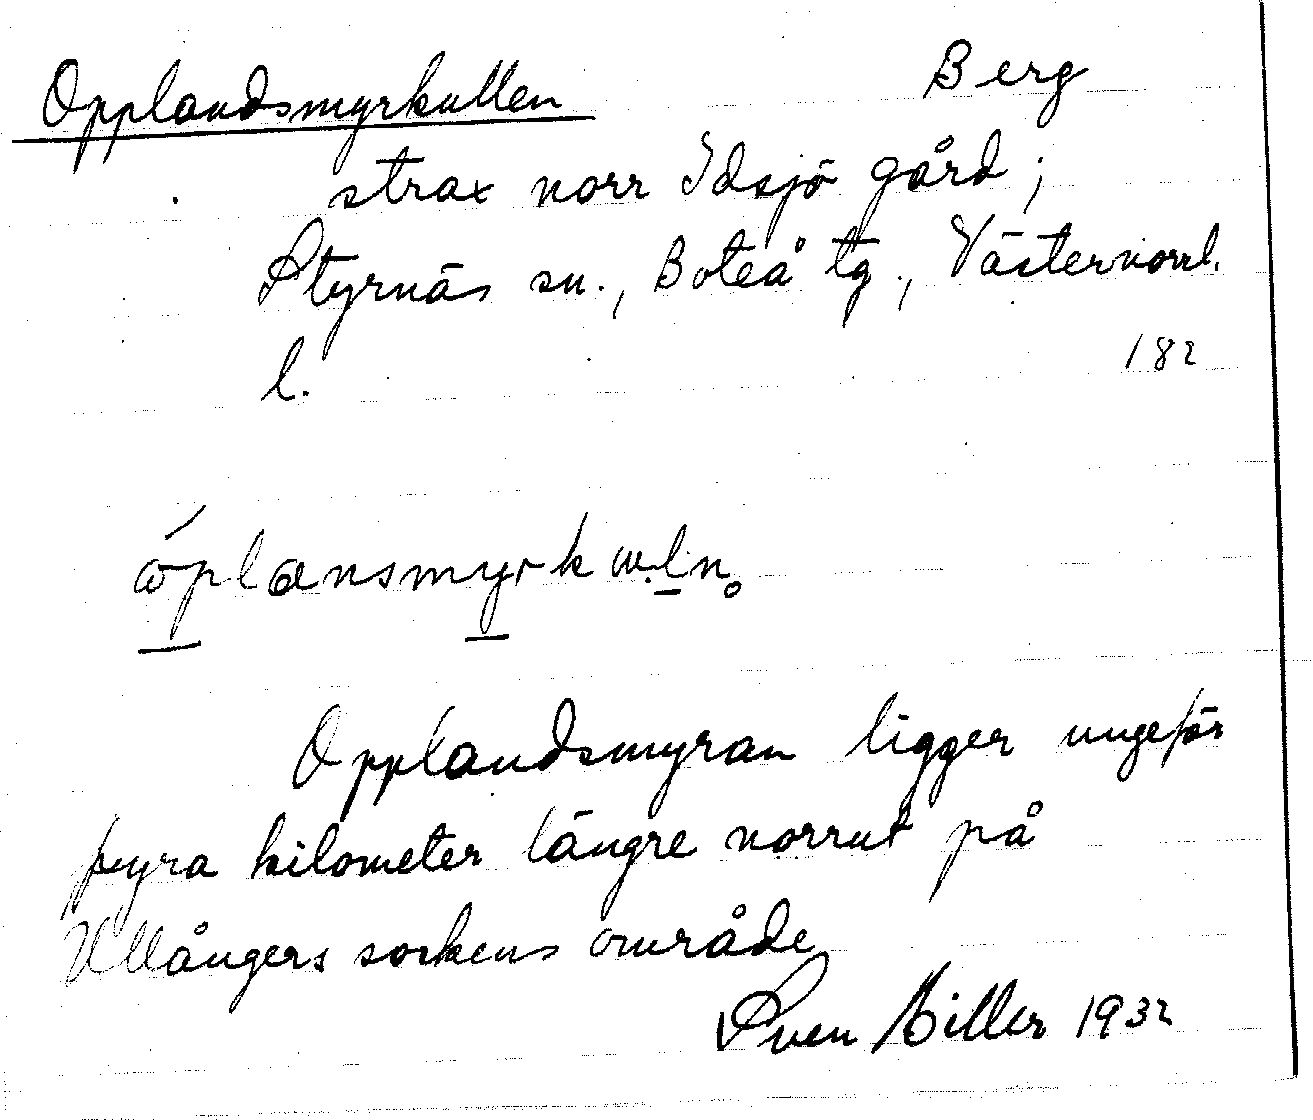 Opplandsmyrkullen Berg
strax norr Idsjö gård;
Styrnäs sn., Boteå tg., Västernorrl.
l. 182
Opplandsmyran ligger ungefär
fyra kilometer längre norrut på
Ullångers sockens område
Sven Hiller 1932